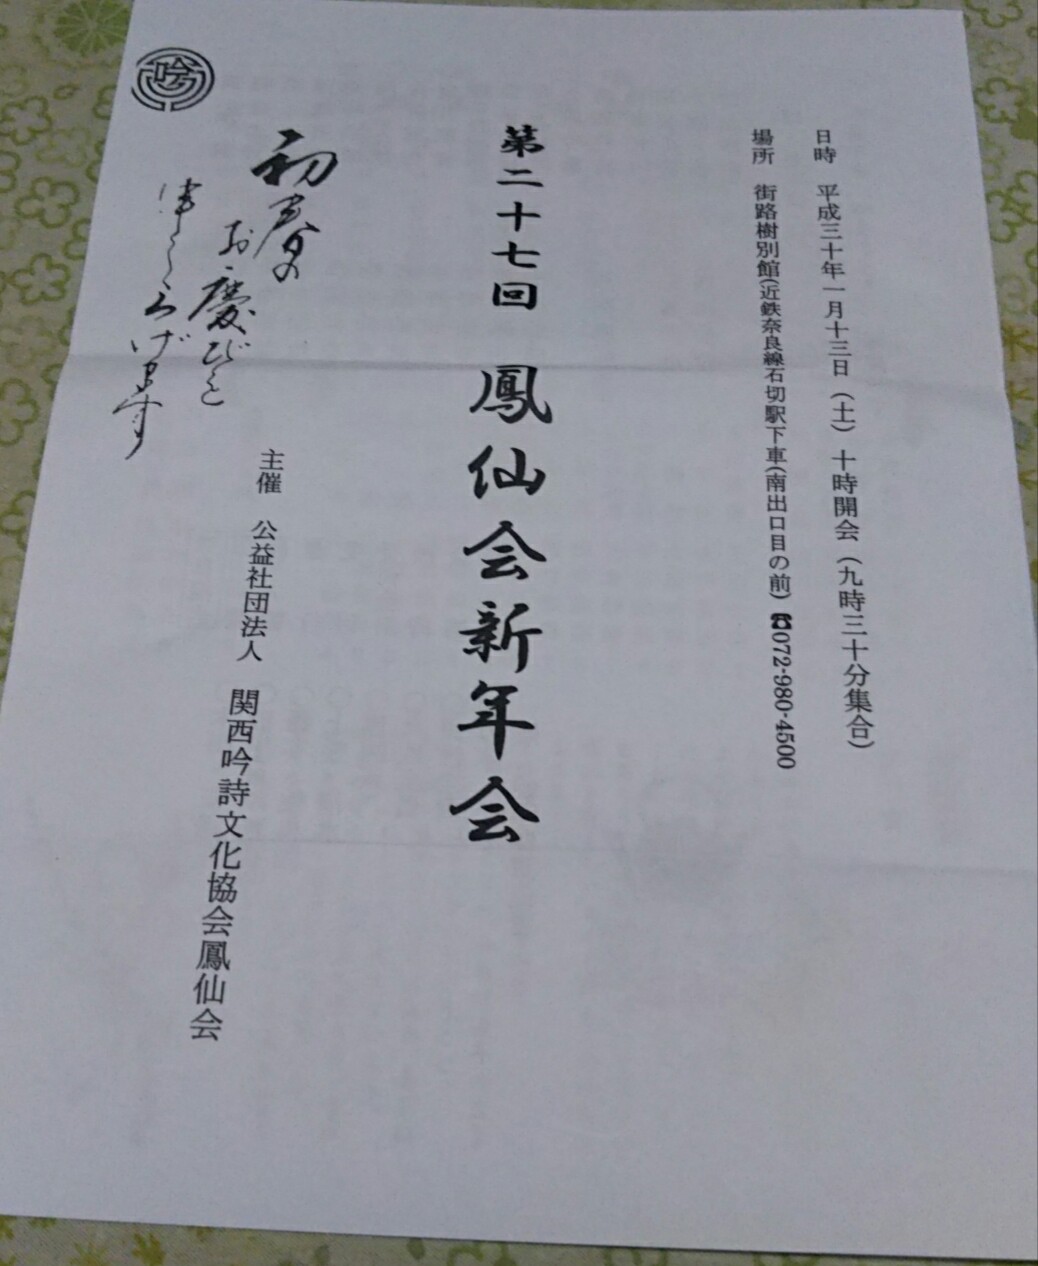 日時 平成三十年一月十三日（土） 十時開会（九時三十分集合）
場所 街路樹別館（近鉄奈良線石切駅下車（南出口目の前）☎072-980-4500
第二十七回 鳳仙会新年会
主催 公益社団法人 関西吟詩文化協会鳳仙会
初春の
お慶びを
吟